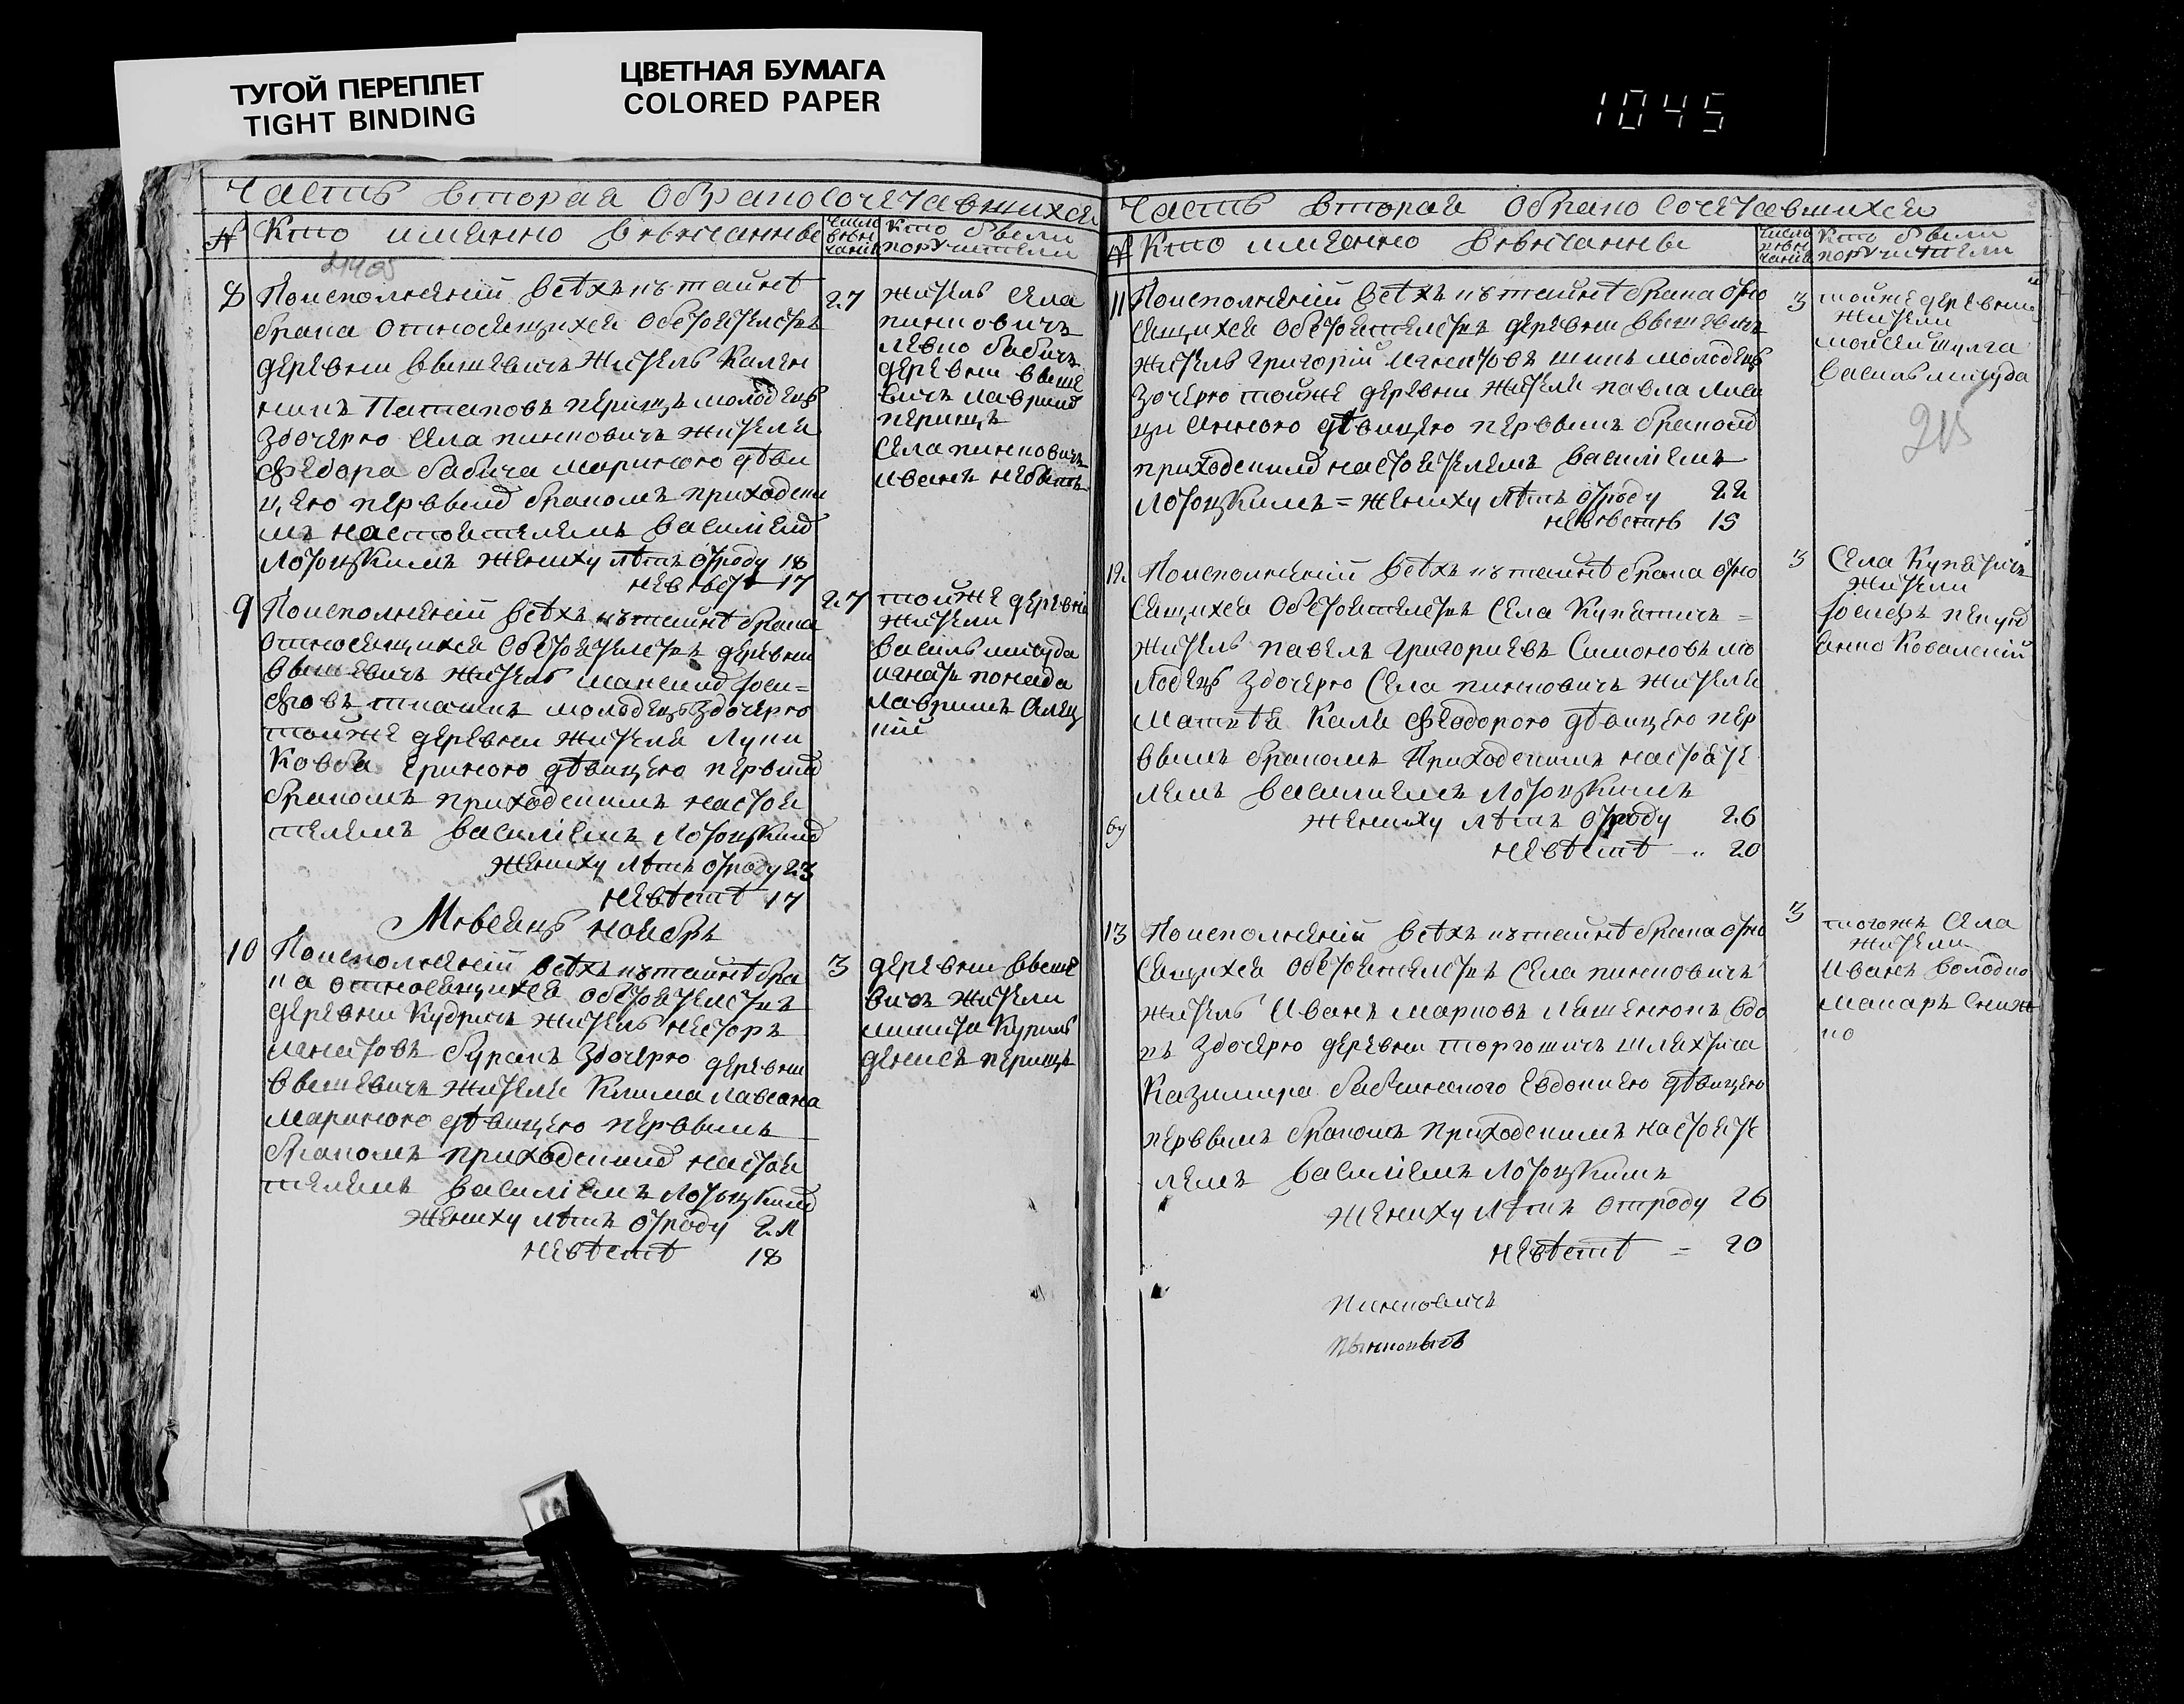 ТУГОЙ ПЕРЕПЛЕТ
TIGHT BINDING
ЦВЕТНАЯ БУМАГА
COLORED PAPER
1045
Часть вторая обракосочетавшихся
№ Кто именно вѣнчанны
Число вѣнчанія
Кто были
поручители
8 Поисполненіи всѣхъ къ тайнѣ
брака относящихся обстоятелствъ
деревни Вышевичъ житель Кален
никъ Патаповъ Перищъ молодецъ
здочерю села Пинковичъ жителя
Федора Бабича Мариною дѣви
цею первымъ бракомъ приходски
мъ настоятелемъ Василіемъ
Лотоцкимъ жениху лѣтъ отроду 18
невѣстѣ 17
27
житель села
Пинковичъ
Левко Бабичъ
деревни Выше
вичъ Лавринъ
Перищъ
села Пинковичъ
Иванъ
9 Поисполненіи всѣхъ къ тайнѣ брака
относящихся обстоятелствъ деревни
Вышевичъ житель Максимъ Іоси=
фовъ молодецъ здочерю
тойже деревни жителя Луки
Ковба Ериною дѣвицею первымъ
бракомъ приходскимъ настоя
телемъ Василіемъ Лотоцкимъ
жениху лѣтъ отроду 23
невѣстѣ 17
27
тойже деревни
жители
Василь Мигуда
Игнатъ
Лавринъ
Мѣсяцъ ноябрь
10 Поисполненіи всѣхъ къ тайнѣ бра
ка относящихся обстоятелствъ
деревни Кудричъ житель Несторъ
Игнатовъ Буракъ здочерю деревни
Вышевичъ жителя Клима
Мариною дѣвицею первымъ
бракомъ приходскимъ настоя
телемъ Василіемъ Лотоцкимъ
жениху лѣтъ отроду 21
невѣстѣ 18
3
деревни Выше
вичъ жители
Микита Куриль
Денисъ Перищъ
Часть вторая обрако сочетавшихся
№ Кто именно вѣнчанны
Число вѣнчанія
Кто были
поручители
11 Поисполненіи всѣхъ къ тайнѣ брака отно
сящихся обстоятелствъ деревни Вышевичъ
житель Григорій Игнатовъ молодецъ
здочерю тойже деревни жителя Павла Лиси
цы Анною дѣвицею первымъ бракомъ
приходскимъ настоятелемъ Василіемъ
Лотоцкимъ = жениху лѣтъ отроду 22
невѣсть 19
3
тойже деревни
жители
Мойсей Шулга
Василь Мигуда
215
12 Поисполненіи всѣхъ къ тайнѣ брака отно
сящихся обстоятелствъ села Купятичъ =
житель Павелъ Григориевъ Симоновъ мо
лодецъ здочерю села Пинковичъ жителя
Матвѣя Каля Феодорою дѣвицею пер
вымъ бракомъ приходскимъ настояте
лемъ Василиемъ Лотоцкимъ
жениху лѣтъ отроду 26
невѣстѣ — " 20
3
села Купятичъ
жители
Іосифъ
Ковалскій
13 Поисполненіи всѣхъ къ тайнѣ брака отно
сящихся обстоятелствъ села Пинковичъ
житель Иванъ Марковъ вдо
въ здочерю деревни Торгошичъ шляхтича
Казимира Бабчинского Евдокиею дѣвицею
первымъ бракомъ приходскимъ настояте
лемъ Василіемъ Лотоцкимъ
жениху лѣтъ отроду 26
невѣстѣ = 20
3
тогожъ села
жители
Иванъ Володко
Макаръ Снѣж
ко
Пинковичъ